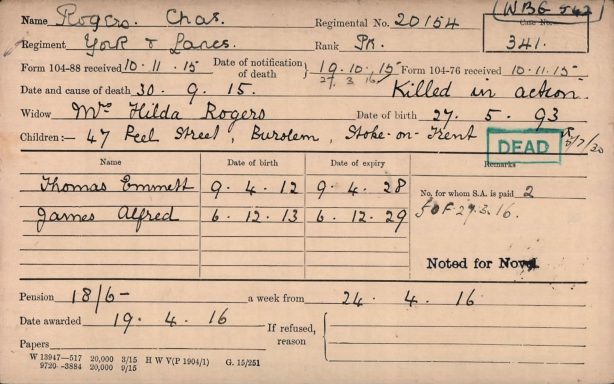 Name Rogers. Chas. Regimental No. 20154 (WBG 542)
Case No.
341.
Regiment York & Lancs. Rank Pte.
Form 104-88 received 10. 11. 15 Date of notification of death 10. 10. 15 Form 104-76 received 10. 11. 15
27. 3. 16
Date and cause of death 30. 9. 15. Killed in action.
Widow Mrs Hilda Rogers Date of birth 27. 5. 93
Children:— 47 Peel Street, Burslem, Stoke-on-Trent DEAD 5/7/20
Name Date of birth Date of expiry Remarks
Thomas Emmett 9. 4. 12 9. 4. 28 No. for whom S.A. is paid 2
James Alfred 6. 12. 13 6. 12. 29 27.3.16.
Noted for Nov.
Pension 18/6- a week from 24. 4. 16
Date awarded 19. 4. 16 If refused, reason
Papers
W 13947—517 20,000 3/15 H W V(P 1904/1) G. 15/251
9720—3884 20,000 9/15